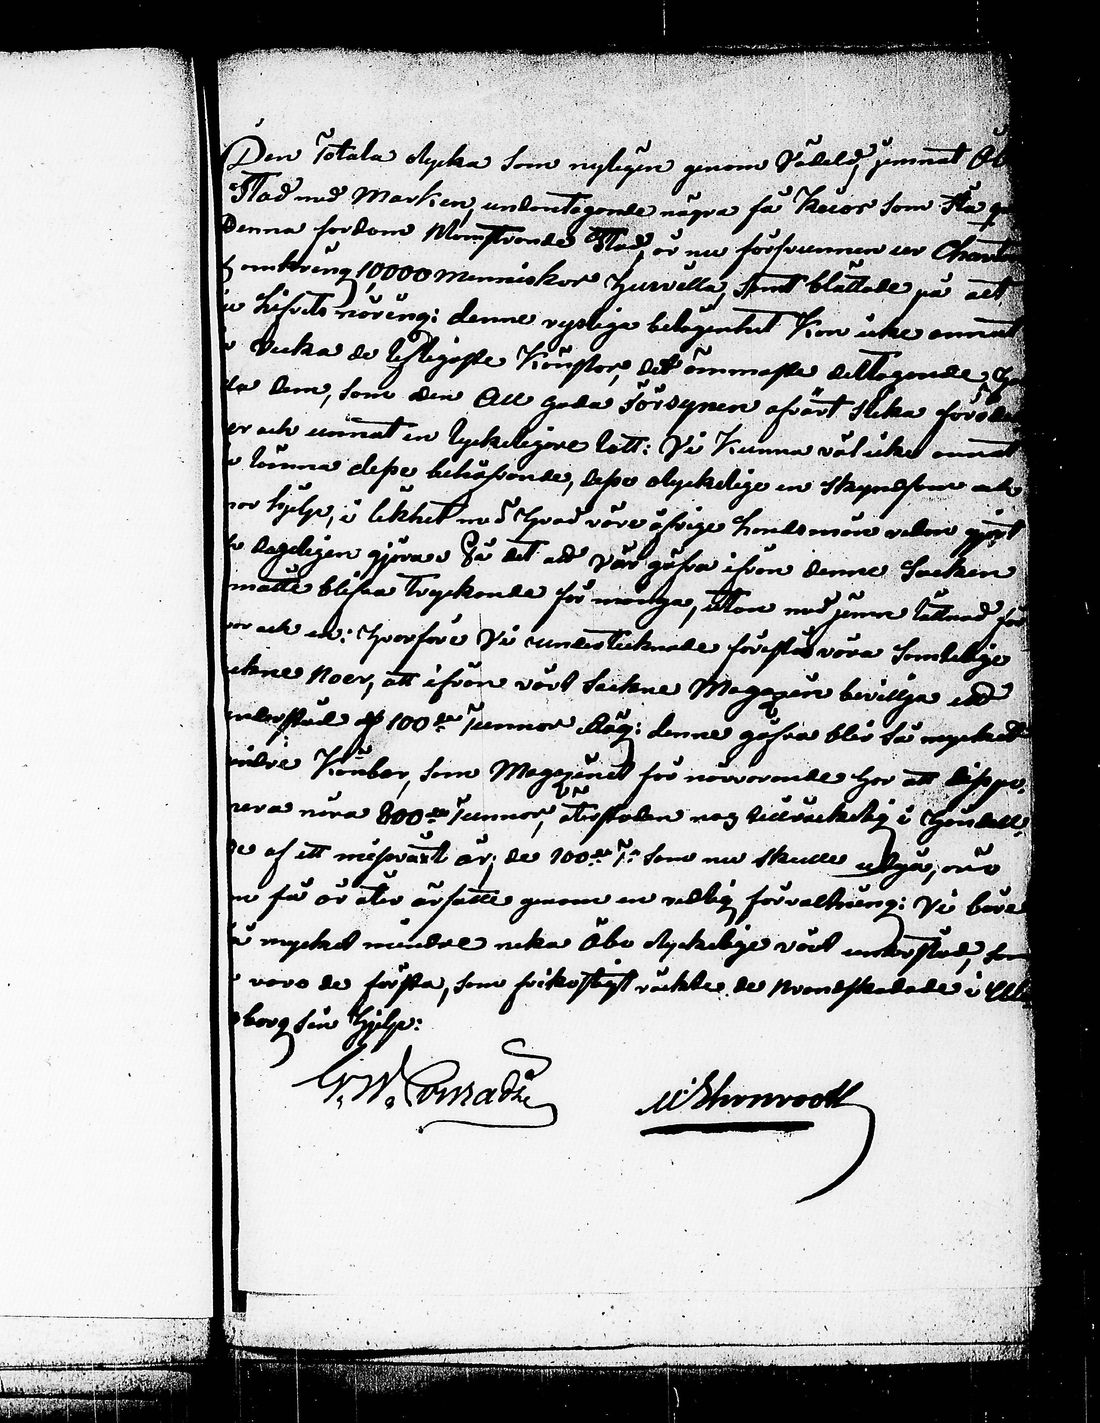 Den Totala olycka som nyligen genom Vådeld, jemnat Åb
Stad med Marken, undantagande några få Kåior som stå q
Denna fordom Blomstrande Stad, är nu försvunnen ur Charta
omkring 10,000 Menniskor Husvilla, samt blåttade på alt
Lifvets näring: denne rysliga belägenhet Kan icke annat
Väcka de lifligaste Känslor, det ömmaste deltagande, ho
dem, som den All goda Försynen afvärt slika
er och unnat en lyckeligare lott: Vi Kunna väl icke annat
lämna desse behöfvande, desse olyckelige en skyndsam och
hjelp, i likhet med hvad våre öfrige Landsmän redan gjort
dageligen gjöra På det att vår gåfva ifrån denne Socken
matte blifva Tryckande för många, utan med jemn lättnad för
var och en: hvarföre Vi undertecknade föreslå våra Samtelige
Sockne Boer, att ifrån vårt Sockne Magazin bevillja ett
understöd af 100:de Tunnor Råg: denne gåfva blir så mycket
mindre Känbar, som Magazinet för närvarande har att dispo-
nera nära 800:de Tunnor, återstoden nog tillräckelig i händelse
af ett missväxt år; de 100:de T:r som nu skulle utgå,
få år åter ärsatte genom en redlig förvaltning: Vi böre
så mycket mindre neka Åbo olyckelige vårt understöd, som
voro de första, som frikostigt räckte de Brandskadade i Ule-
borg sin hjelp:
G. W. Conradi